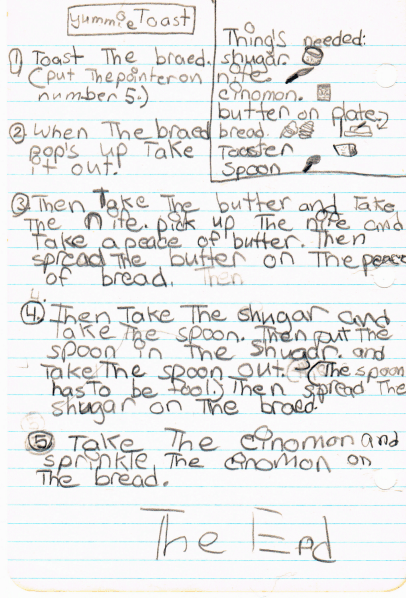 yummie Toast
Thing's needed:
shugar
nife
cinomon.
butter on plate
bread.
Toaster
spoon
① Toast The braed.
(put The pointer on
number 5.)
② When The braed
pop's up Take
it out.
③ Then Take The butter and Take
The nife. pick up The nife and
Take a peace of butter. Then
spread The butter on The peace
of bread. Then
④. Then Take The shugar and
Take The spoon. Then put The
spoon in The shugar. and
Take The spoon out. (The spoon
has To be fool.) Then spread The
shugar on The braed.
⑤ Take The cinomon and
sprinkle The cinomon on
The bread.
The End